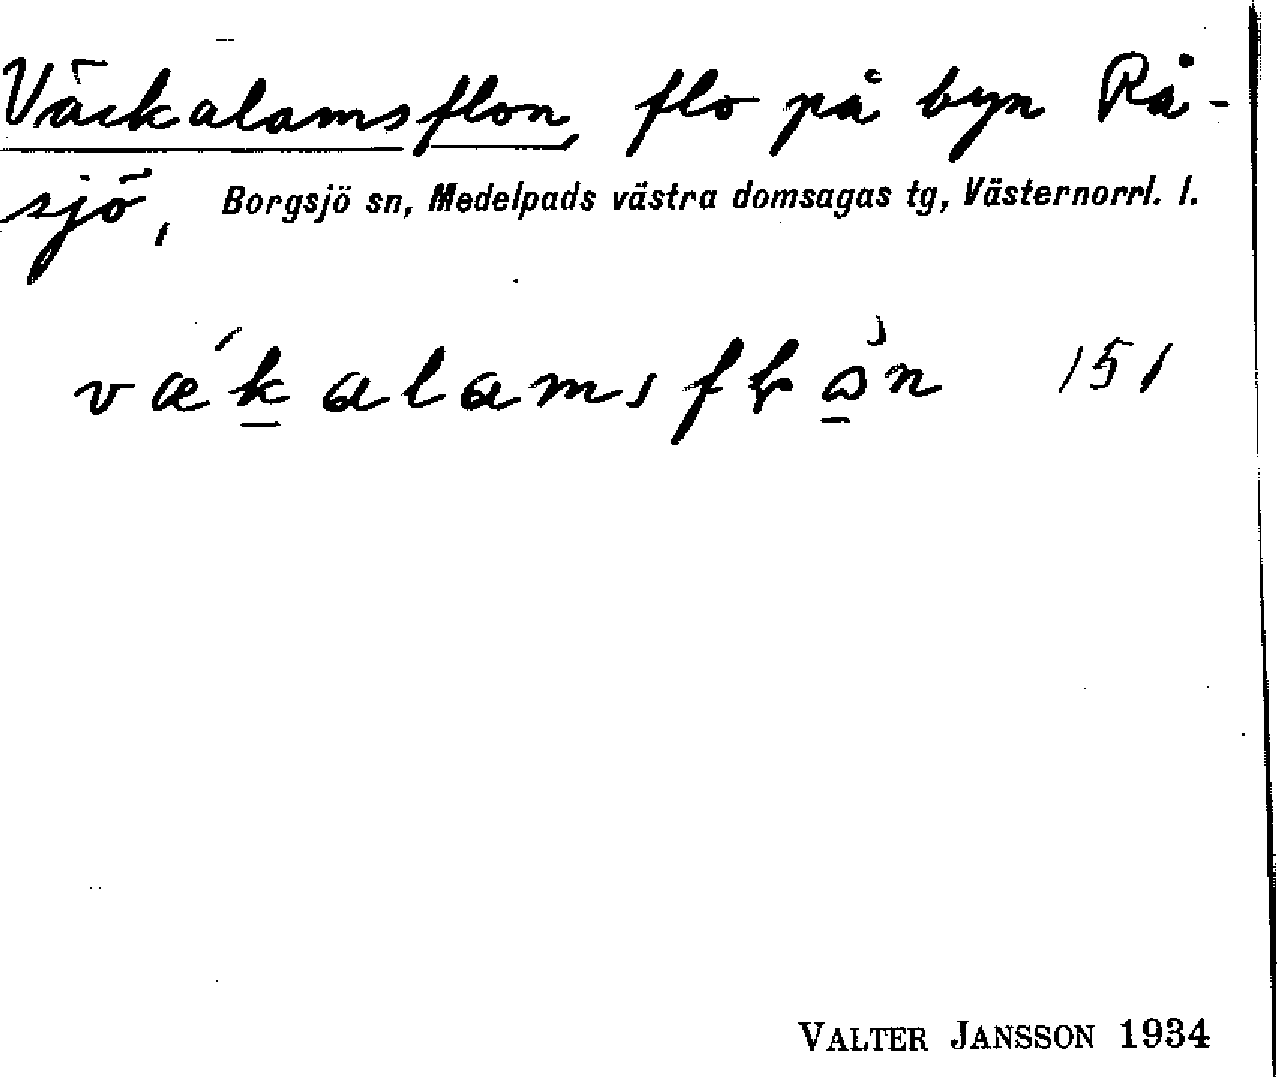 Väckalamsflon, flo på byn Rå-
sjö, Borgsjö sn, Medelpads västra domsagas tg, Västernorrl. l.
vǽkalamsflɷ̀n 151
VALTER JANSSON 1934